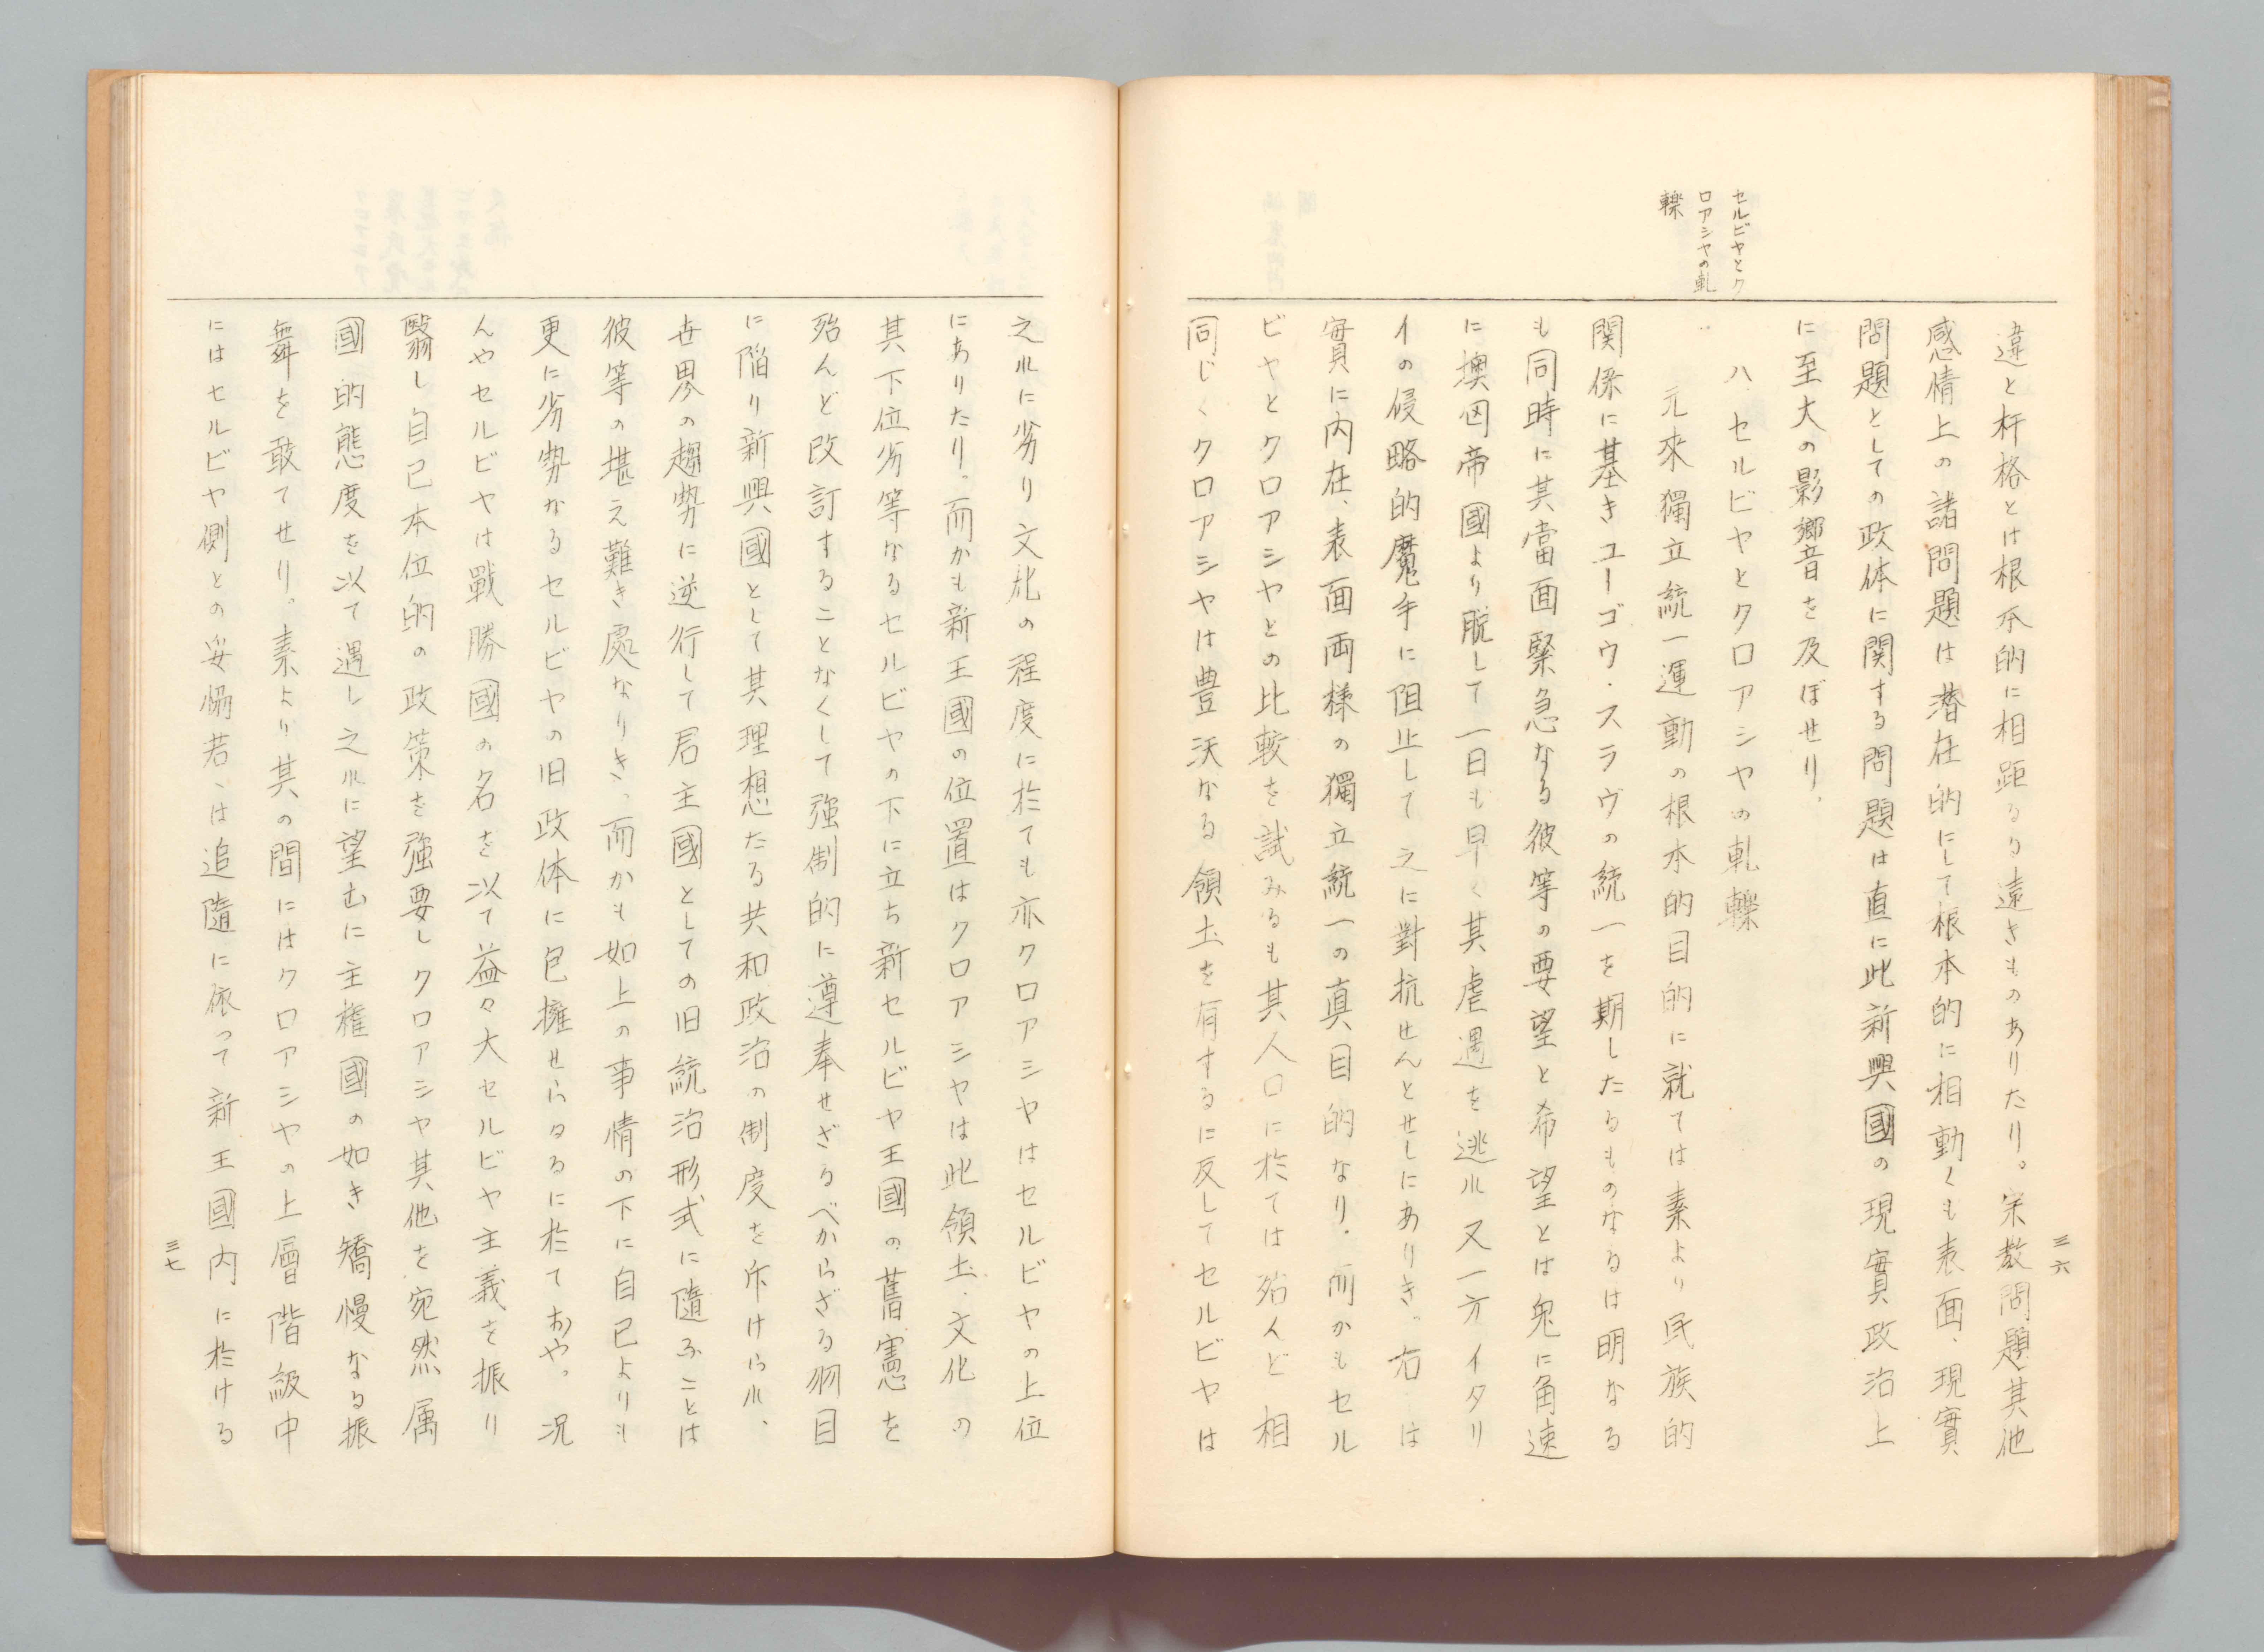 セルビヤとク
ロアシヤの軋
轢
違と杆格とは根本的に相距るり遠きものありたり。宋教問題其他
感情上の諸問題は潜在的にして根本的に相動くも表面、現實
問題としての政体に関する問題は直に此新興國の現實政治上
に至大の影響を及ぼせり。
八、セルビヤとクロアシヤの軋轢
元來獨立統一運動の根本的目的に就ては素より民族的
関係に基きユーゴウ・スラヴの統一を期したるものなるは明なる
も同時に其當面緊急なる彼等の要望と希望とは兎に角速
に墺匈帝國より脱して一日も早く其虐遇を逃れ又一方イタリ
イの侵略的魔手に阻止して之に對抗せんとせしにありき。右は
實に内在、表面両様の獨立統一の真目的なり。而かもセル
ビヤとクロアシヤとの比較を試みるも其人口に於ては殆んど相
同じくクロアシヤは豊沃なる領土を有するに反してセルビヤは
三六
之れに劣り文化の程度に於ても亦クロアシヤはセルビヤの上位
にありたり。而かも新王國の位置はクロアシヤは此領土、文化の
其下位劣等なるセルビヤの下に立ち新セルビヤ王國の舊憲を
殆んど改訂することなくして強制的に遵奉せざるべからざる羽目
に陥り新興國として其理想たる共和政治の制度を斥けられ、
世界の趨勢に逆行して君主國としての旧統治形式に隨ふことは
彼等の堪え難き處なりき。而かも如上の事情の下に自己よりも
更に劣勢なるセルビヤの旧政体に包擁せらるるに於ておや。况
んやセルビヤは戰勝國の名を以て益々大セルビヤ主義を振り
翳し自己本位的の政策を強要しクロアシヤ其他を宛然属
國的態度を以て遇し之れに望むに主權國の如き矯慢なる振
舞を敢てせり。素より其の間にはクロアシヤの上層階級中
にはセルビヤ側との妥協若くは追隨に依って新王國内に於ける
三七